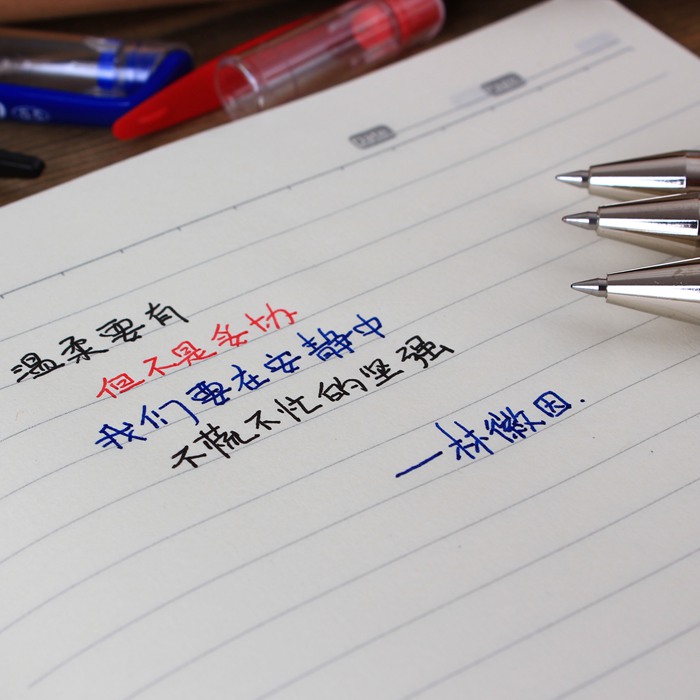 温柔要有
但不是妥协
我们要在安静中
不慌不忙的坚强
—林徽因.